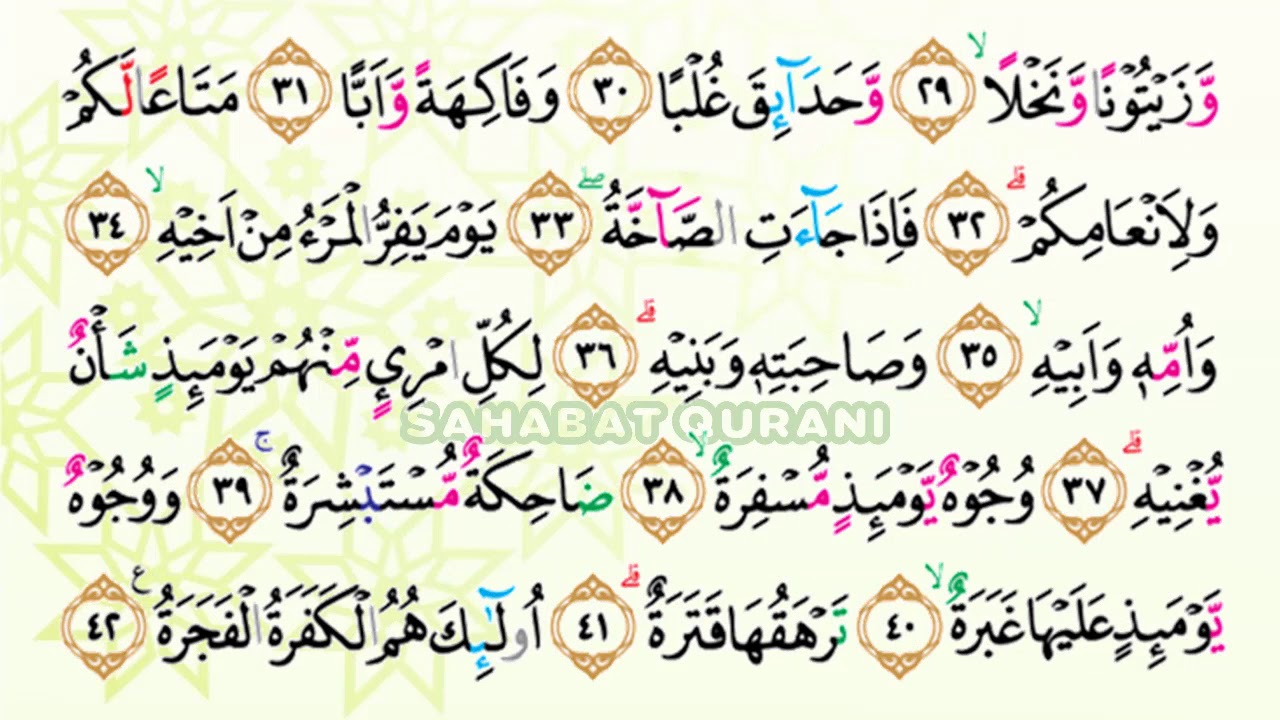 وَّزَيْتُوْنًا وَّنَخْلًاۙ ٢٩ وَّحَدَاۤىِٕقَ غُلْبًا ٣٠ وَفَاكِهَةً وَّاَبًّا ٣١ مَتَاعًا لَّكُمْ
وَلِاَنْعَامِكُمْۗ ٣٢ فَاِذَا جَاۤءَتِ الصَّاۤخَّةُۖ ٣٣ يَوْمَ يَفِرُّ الْمَرْءُ مِنْ اَخِيْهِۙ ٣٤
وَاُمِّهٖ وَاَبِيْهِۙ ٣٥ وَصَاحِبَتِهٖ وَبَنِيْهِۗ ٣٦ لِكُلِّ امْرِئٍ مِّنْهُمْ يَوْمَىِٕذٍ شَأْنٌ
SAHABAT QURANI
يُّغْنِيْهِۗ ٣٧ وُجُوْهٌ يَّوْمَىِٕذٍ مُّسْفِرَةٌۙ ٣٨ ضَاحِكَةٌ مُّسْتَبْشِرَةٌۚ ٣٩ وَوُجُوْهٌ
يَّوْمَىِٕذٍ عَلَيْهَا غَبَرَةٌۙ ٤٠ تَرْهَقُهَا قَتَرَةٌۗ ٤١ اُولٰۤىِٕكَ هُمُ الْكَفَرَةُ الْفَجَرَةُ ࣖ ٤٢